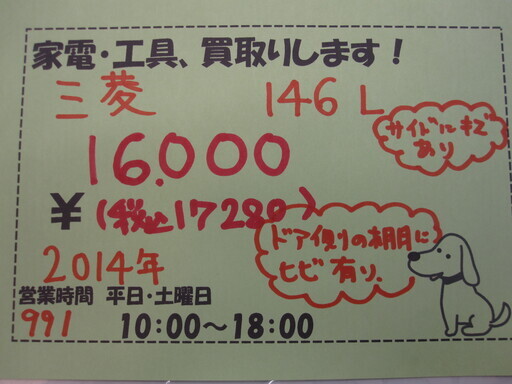 家電・工具、買取りします!
三菱 146L
サイドにキズ
あり
16.000
¥(税込17280)
ドア側の棚に
ヒビ有り.
2014年
営業時間 平日・土曜日
991 10:00～18:00